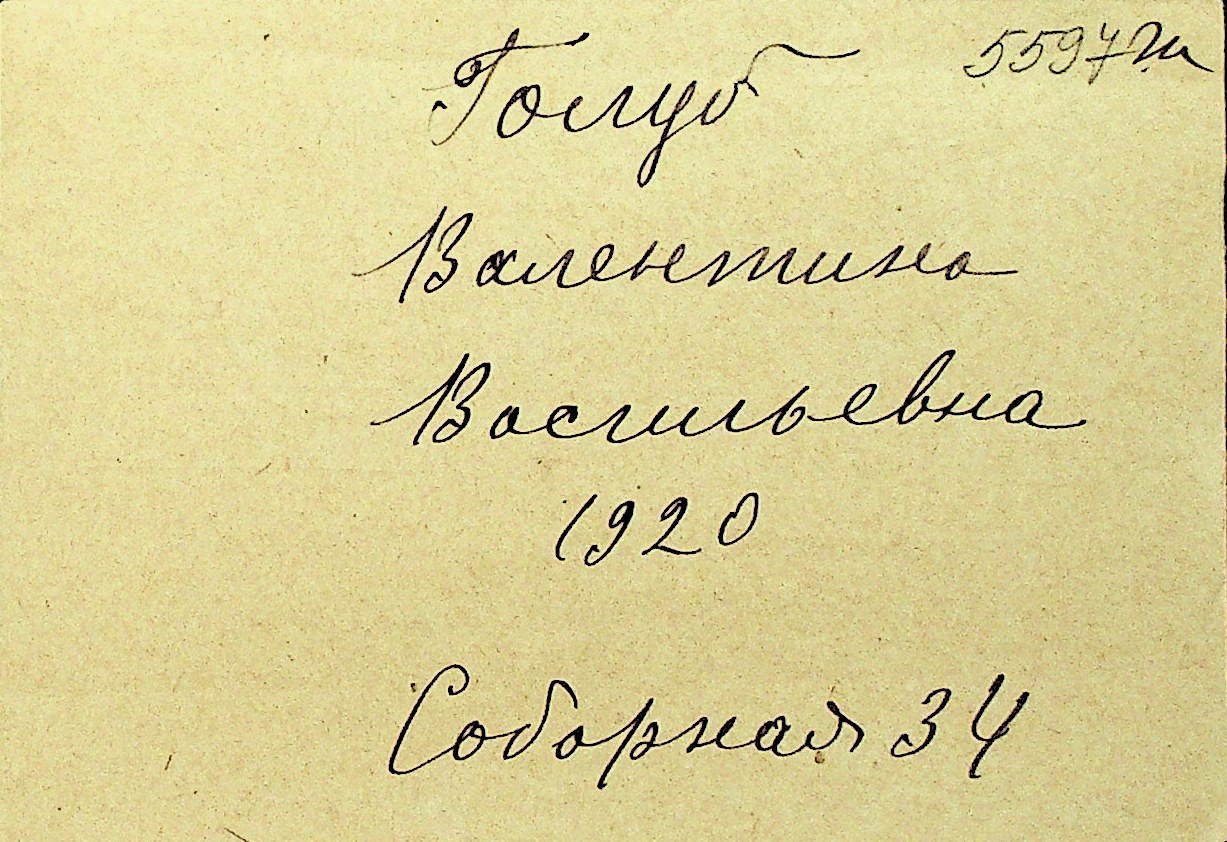 5597
Голуб
Валентина
Васильевна
1920
Соборная 34